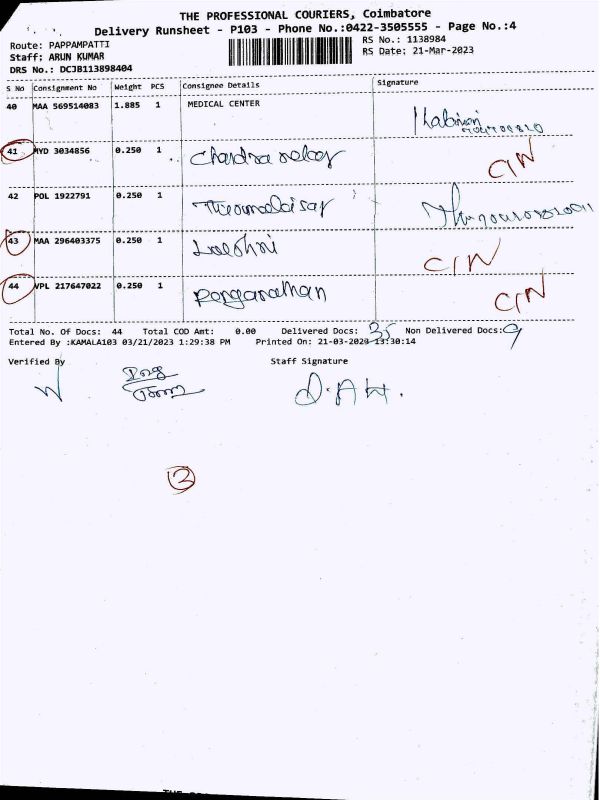 THE PROFESSIONAL COURIERS, Coimbatore
Delivery Runsheet - P103 - Phone No.:0422-3505555 - Page No.:4
Route: PAPPAMPATTI RS No.: 1138984
Staff: ARUN KUMAR RS Date: 21-Mar-2023
DRS No.: DCJB113898404
S No Consignment No Weight PCS Consignee Details Signature
40 MAA 569514083 1.885 1 MEDICAL CENTER
41 HYD 3034856 0.250 1 C/N
42 POL 1922791 0.250 1
43 MAA 296403375 0.250 1 C/N
44 VPL 217647022 0.250 1 Ranganathan C/N
Total No. Of Docs: 44 Total COD Amt: 0.00 Delivered Docs: 35 Non Delivered Docs: 9
Entered By :KAMALA103 03/21/2023 1:29:38 PM Printed On: 21-03-2023 13:30:14
Verified By Staff Signature
3